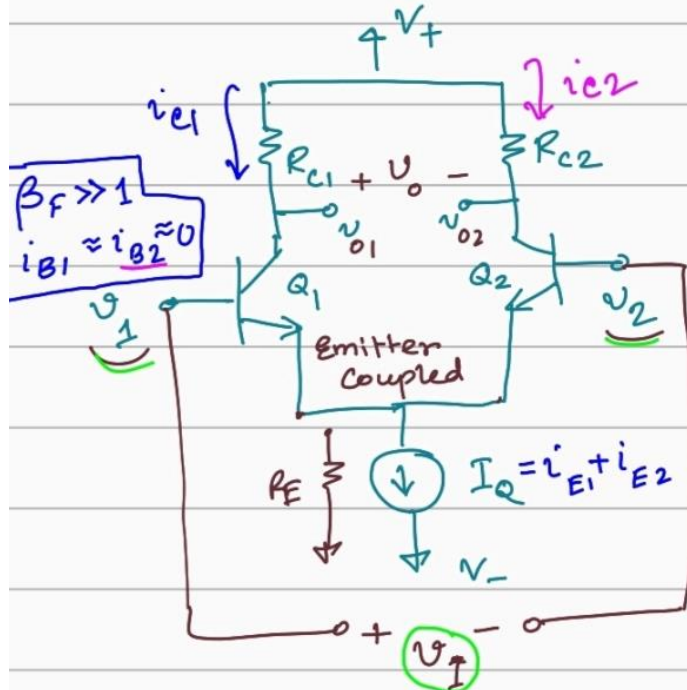 V+
i_C1
i_C2
R_C1
R_C2
+ v_o -
β_F >> 1
i_B1 ≈ i_B2 ≈ 0
v_o1
v_o2
Q_1
Q_2
v_1
v_2
Emitter
Coupled
R_E
I_Q = i_E1 + i_E2
V-
+ v_I -